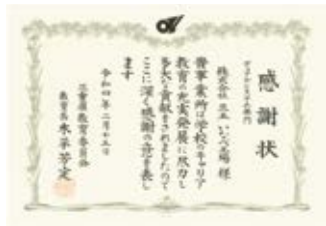 感謝状
株式会社
様
貴事業所は学校のキャリア
教育の充実発展に尽力し
多大な貢献をされましたので
ここに深く感謝の意を表し
ます
令和四年二月十五日
三重県教育委員会
教育長 木平芳定